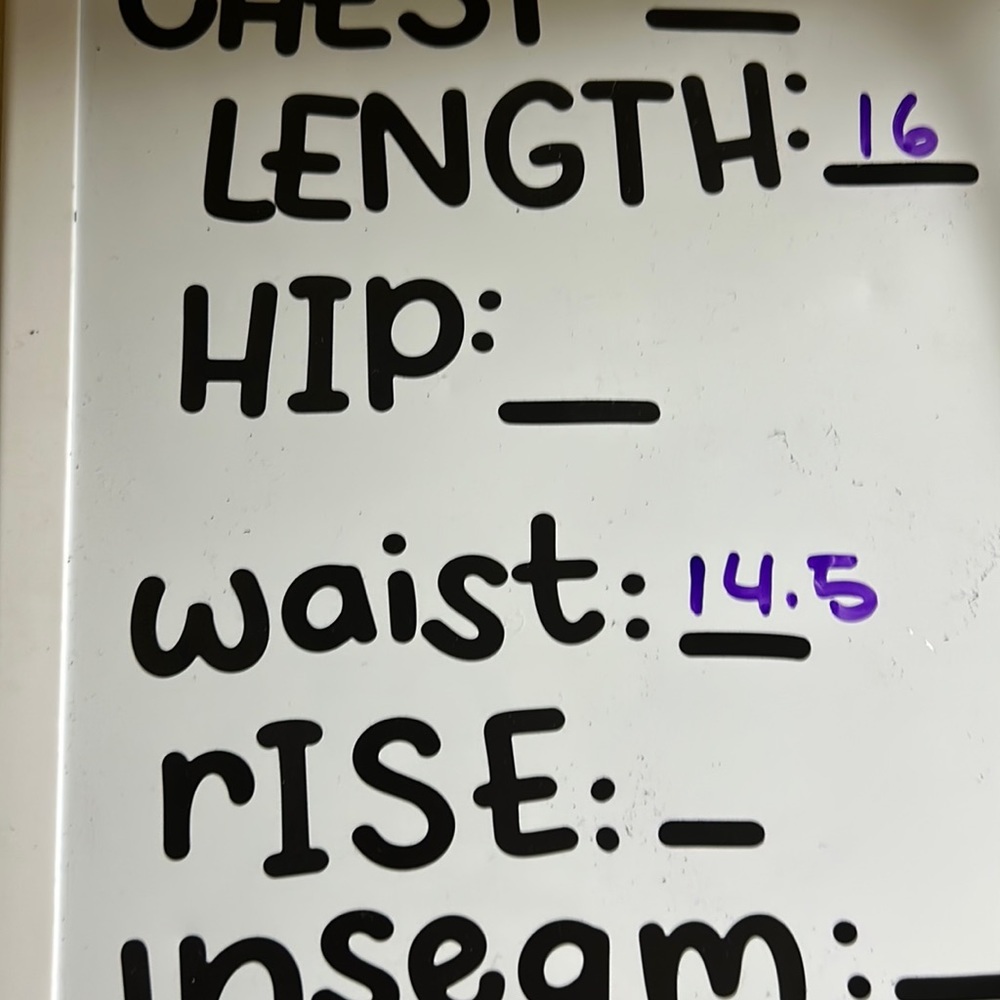 CHEST __
LENGTH: 16
HIP: __
waist: 14.5
rISE: _
inseam: __